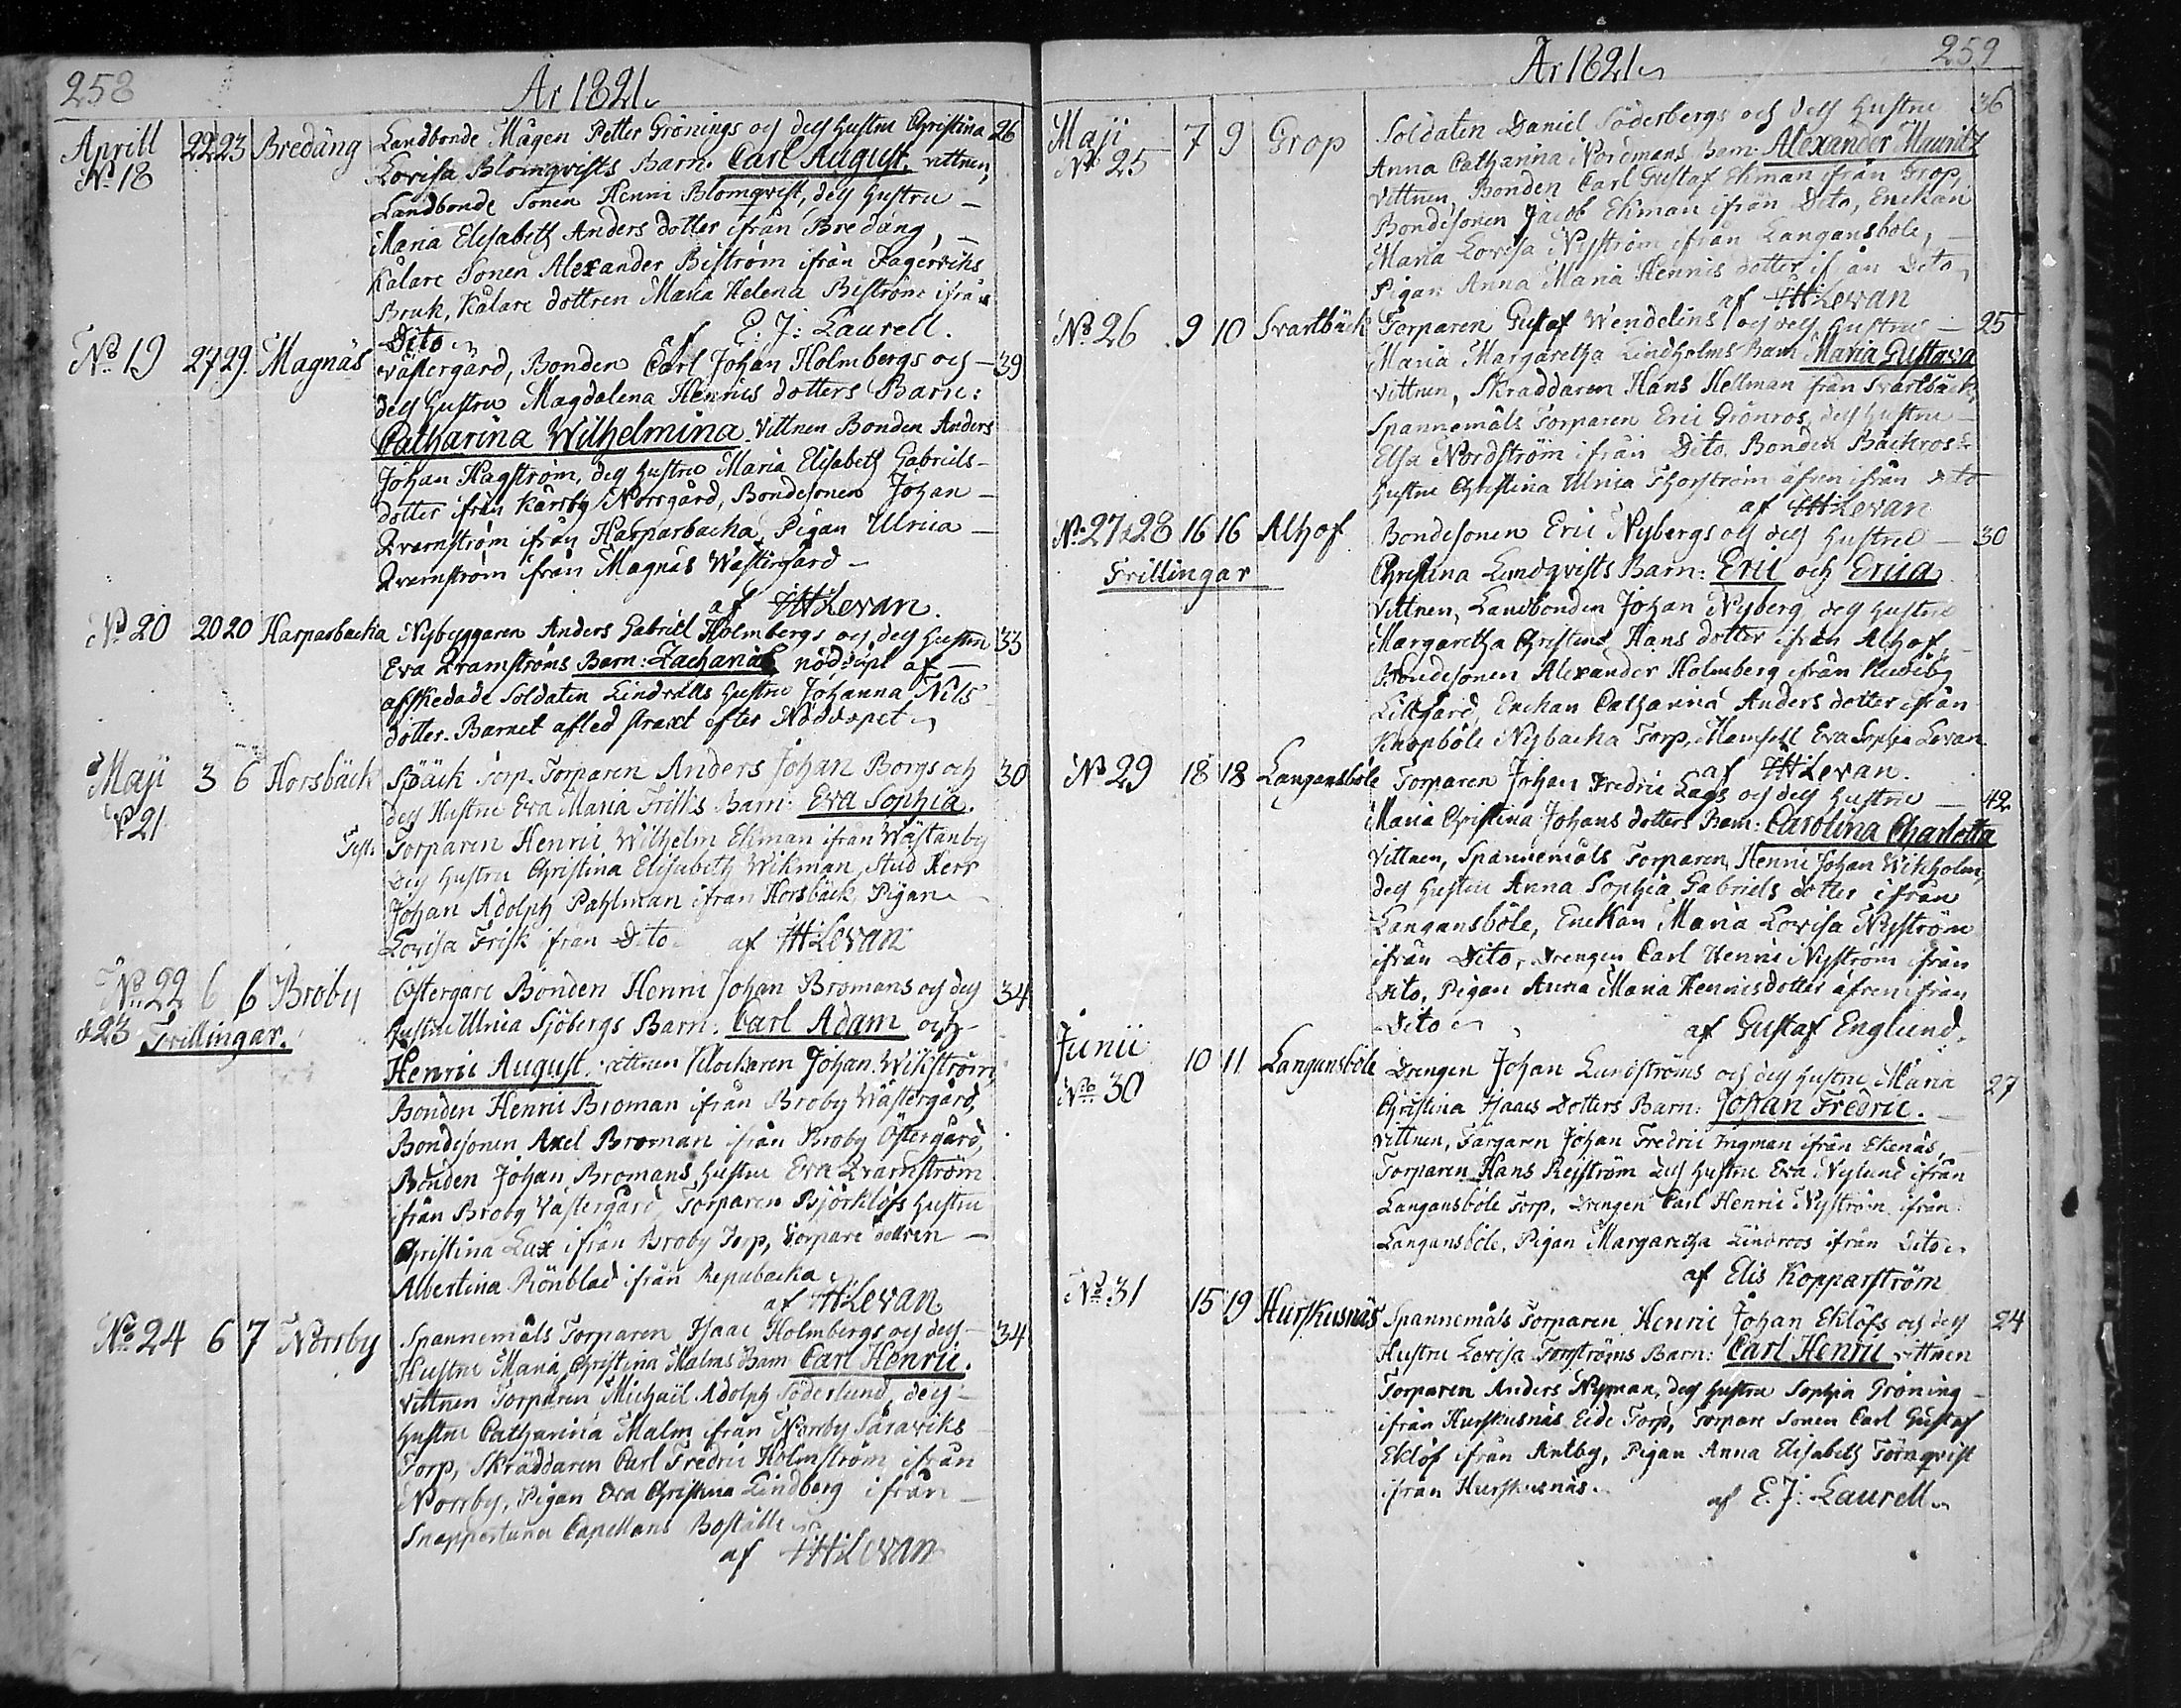 258
År 1821
Aprill 22 23 Bredäng Landbonde Mågen Petter Grönings och dess hustru Christina 26
No 18 Lovisa Blomqvists Barn: Carl August. vittnen,
Landbonde Sonen Henric Blomqvist, dess hustru –
Maria Elisabeth Anders dotter ifrån Bredäng, –
Kålare Sonen Alexander Biström ifrån Fagerviks
Bruk, Kålare dottren Maria Helena Biström ifrån
Dito af E. J: Laurell.
No 19 27 29. Magnäs Wästergård, Bonden Carl Johan Holmbergs och – 39
dess hustru Magdalena Henrics dotters Barn:
Catharina Wilhelmina. Vittnen Bonden Anders
Johan Hagström, dess hustru Maria Elisabeth Gabriels-
dotter ifrån Karsby Norrgård, Bondesonen Johan –
Qvarnström ifrån Harparbacka, Pigan Ulrica –
Qvarnström ifrån Magnäs Wästergård –
af HLevan.
No 20 20 20 Harparbacka Nybyggaren Anders Gabriel Holmbergs och dess hustru 33
Eva Qvarnströms Barn: Zacharias nöddöpt af –
afskedade Soldaten Lindvalls hustru Johanna Nils
dotter. Barnet afled straxt efter Nöddopet
Maji 3 6 Horsbäck Torp. Torparen Anders Johan Borgs och 30
No 21 dess Hustru Eva Maria Frisks Barn: Eva Sophia.
Test. Torparen Henric Wilhelm Ekman ifrån Wästanby
dess hustru Christina Elisabeth Wikman, Stud Herr
Johan Adolph Pahlman ifrån Horsbäck, Pigan
Lovisa Frisk ifrån Dito. af HLevan
No 22 6 6 Broby Östergård Bonden Henric Johan Bromans och dess 34
& 23 Tvillingar. hustru Ulrica Sjöbergs Barn: Carl Adam och
Henric August. vittnen Klockaren Johan Wikström,
Bonden Henric Broman ifrån Broby Wästergård,
Bondesonen Axel Broman ifrån Broby Östergård,
Bonden Johan Bromans hustru Eva Qvarnström
ifrån Broby Västergård, Torparen Björklöfs hustru
Christina Lax ifrån Broby Torp, Torpare dottren –
Albertina Rönblad ifrån Repubacka
af HLevan
No 24 6 7 Norrby Spannemåls Torparen Isaac Holmbergs och dess – 34
Hustru Maria Christina Malms Barn Carl Henric.
vittnen Torparen Michael Adolph Söderlund, dess –
hustru Catharina Malm ifrån Norrby Saraviks
Torp, Skräddaren Carl Fredric Holmström ifrån
Norrby, Pigan Eva Christina Lindberg ifrån –
Snappertuna Capellans Boställe
af HLevan
259
År 1821
Maji 7 9 Grop Soldaten Daniel Söderbergs och dess hustru 36
No 25 Anna Catharina Noremans Barn: Alexander Mauritz
vittnen, Bonden Carl Gustaf Ekman ifrån Grop,
Bondesonen Jacob Ekman ifrån Dito, Enckan
Maria Lovisa Nyström ifrån Langansböle, –
Pigan Anna Maria Henrics dotter ifrån Dito
af HLevan
No 26 9 10 Svartbäck Torparen Gustaf Wendelins och dess hustru – 25
Maria Margaretha Lindholms Barn Maria Gustava
vittnen, Skraddaren Hans Hellman från Svartbäck,
Spannemåls Torparen Eric Grönros, dess hustru –
Elsa Nordström ifrån Dito, Bonden Bäckros
hustru Christina Ulrica Thorström äfven ifrån dito
af HLevan
No 27 & 28 16 16 Alhof Bondesonen Eric Nybergs och dess hustru – 30
Tvillingar Christina Lindqvists Barn: Eric och Erica
Vittnen, Landbonden Johan Nyberg, dess hustru
Margaretha Christina Hans dotter ifrån Alhof,
Bondesonen Alexander Holmberg ifrån
Lillgård, Enckan Catharina Anders dotter ifrån
Knopböle Nybacka Torp, Mamsell Eva Sophia Levan
af HLevan.
No 29 18 18 Langansböle Torparen Johan Fredric Lags och dess hustru – 42
Maria Christina Johans dotters Barn: Carolina Charlotta
Vittnen, Spannemåls Torparen, Henric Johan Wikholm,
dess hustru Anna Sophia Gabriels dotter ifrån
Langansböle, Enckan Maria Lovisa Nyström
ifrån Dito, Drengen Carl Henric Nyström ifrån
Dito, Pigan Anna Maria Henricsdotter äfven ifrån
Dito af Gustaf Englund.
Junii 10 11 Langansböle Drengen Johan Lundströms och dess hustru Maria 27
No 30 Christina Isaacs Dotters Barn: Johan Fredric. –
vittnen, Färgaren Johan Fredric Ingman ifrån Ekenäs,
Torparen Hans Rejström dess hustru Eva Nylund ifrån
Langansböle Torp, Drengen Carl Henric Nyström ifrån
Langansböle, Pigan Margaretha Lindroos ifrån Dito
af Elis Kopparström
No 31 15 19 Hurskusnäs Spannemåls Torparen Henric Johan Eklöfs och dess 24
Hustru Lovisa Torströms Barn: Carl Henric vittnen
Torparen Anders Nyman, dess hustru Sophia Gröning –
ifrån Hurskusnäs Eide Torp, Torpare Sonen Carl Gustaf
Eklöf ifrån Antby, Pigan Anna Elisabeth Törnqvist
ifrån Hurskusnäs. af E. J: Laurell